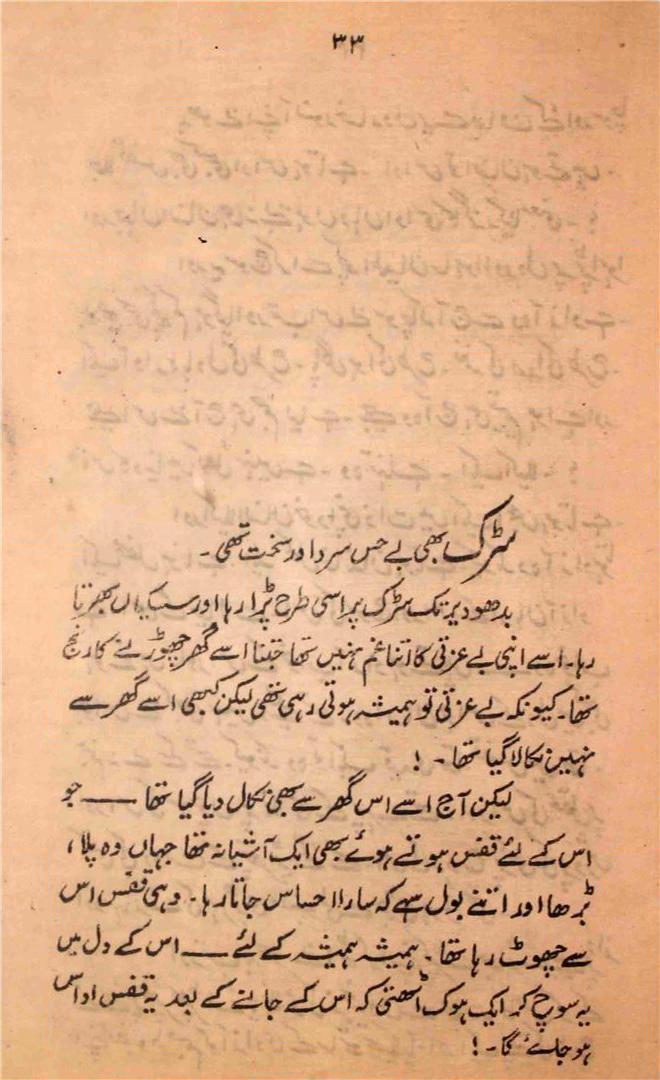 ۳۳
سڑک بھی بے حس سرد اور سخت تھی ۔
بدھو دیر تک سڑک پر اسی طرح پڑا رہا اور سسکیاں بھرتا
رہا۔ اسے اپنی بے عزتی کا اتنا غم نہیں تھا جتنا اسے گھر چھوڑنے کا رنج
تھا۔ کیونکہ بے عزتی تو ہمیشہ ہوتی رہی تھی لیکن کبھی اسے گھر سے
نہیں نکالا گیا تھا ۔ !
لیکن آج اسے اس گھر سے بھی نکال دیا گیا تھا —— جو
اس کے لئے قفس ہوتے ہوئے بھی ایک آشیانہ تھا جہاں وہ پلا،
بڑھا اور اتنے بول سہے کہ سارا احساس جاتا رہا۔ وہی قفس اس
سے چھوٹ رہا تھا۔ ہمیشہ ہمیشہ کے لئے —— اس کے دل میں
یہ سوچ کر ایک ہوک اٹھتی کہ اس کے جانے کے بعد یہ قفس اداس
ہو جائے گا۔ !